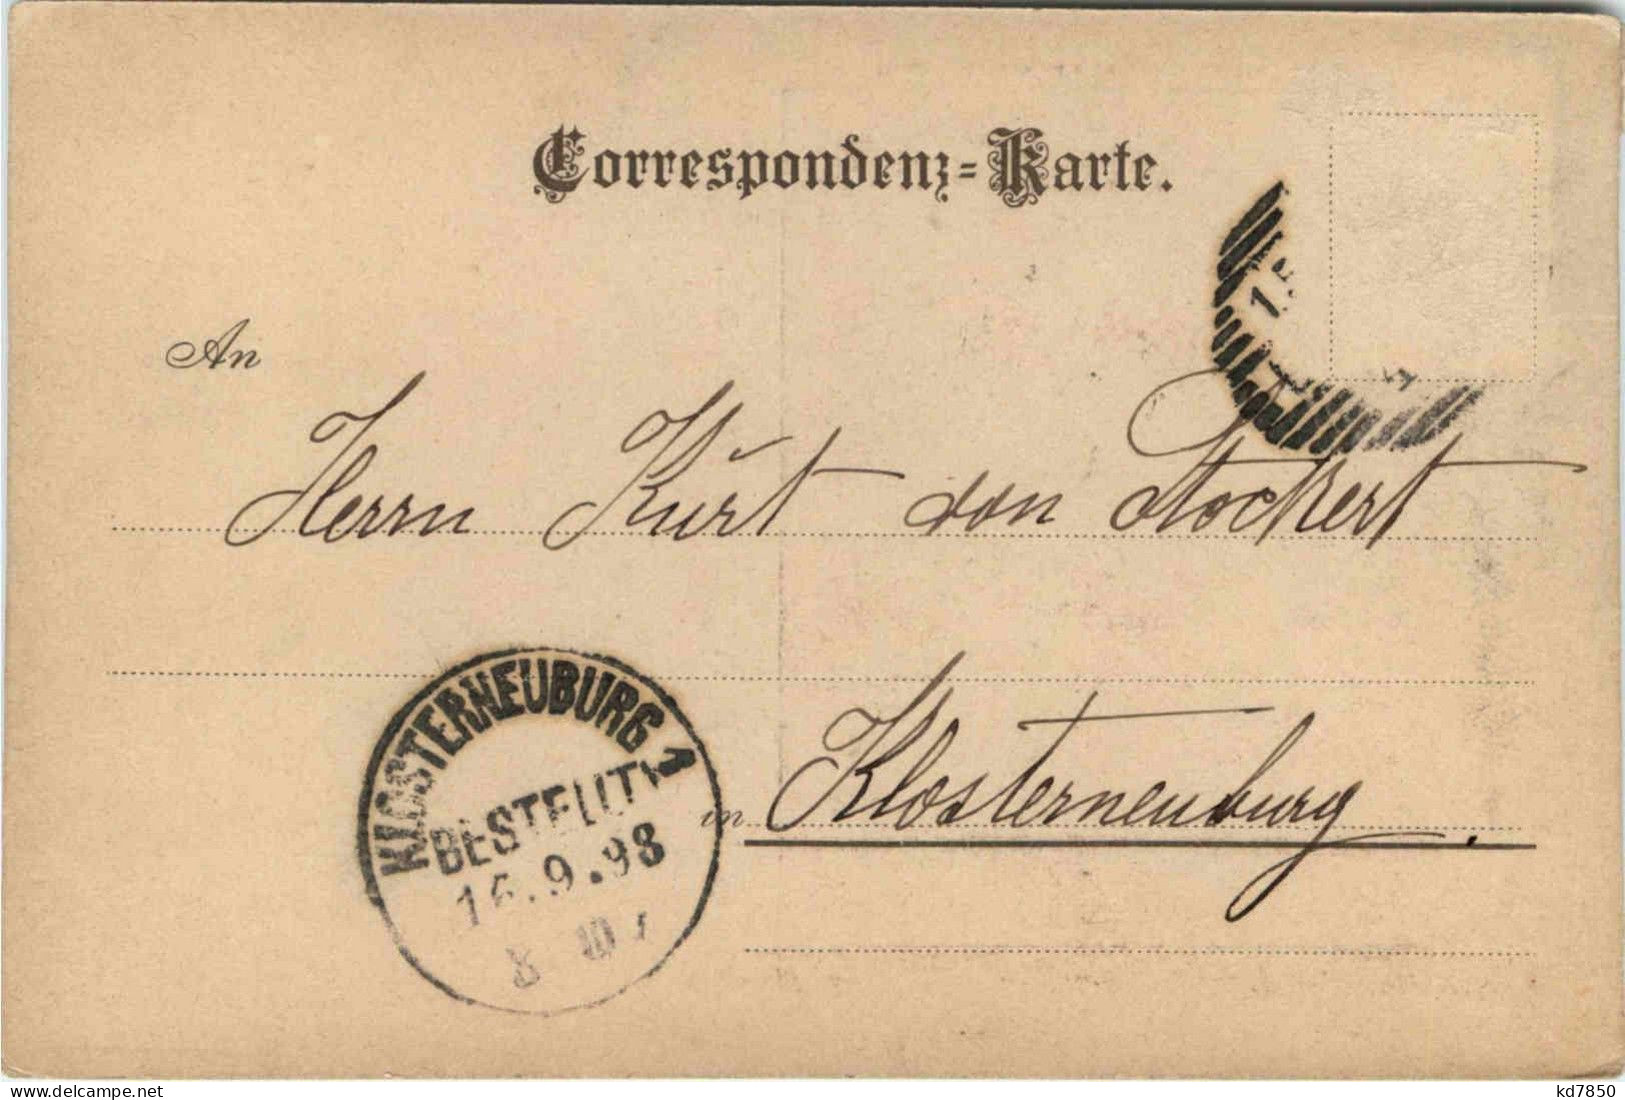 Correspondenz-Karte.
An
Herrn Kurt von Stockert
KLOSTERNEUBURG 1
BESTELLT
16.9.98
8
in Klosterneuburg.
delcampe.net
kd7850